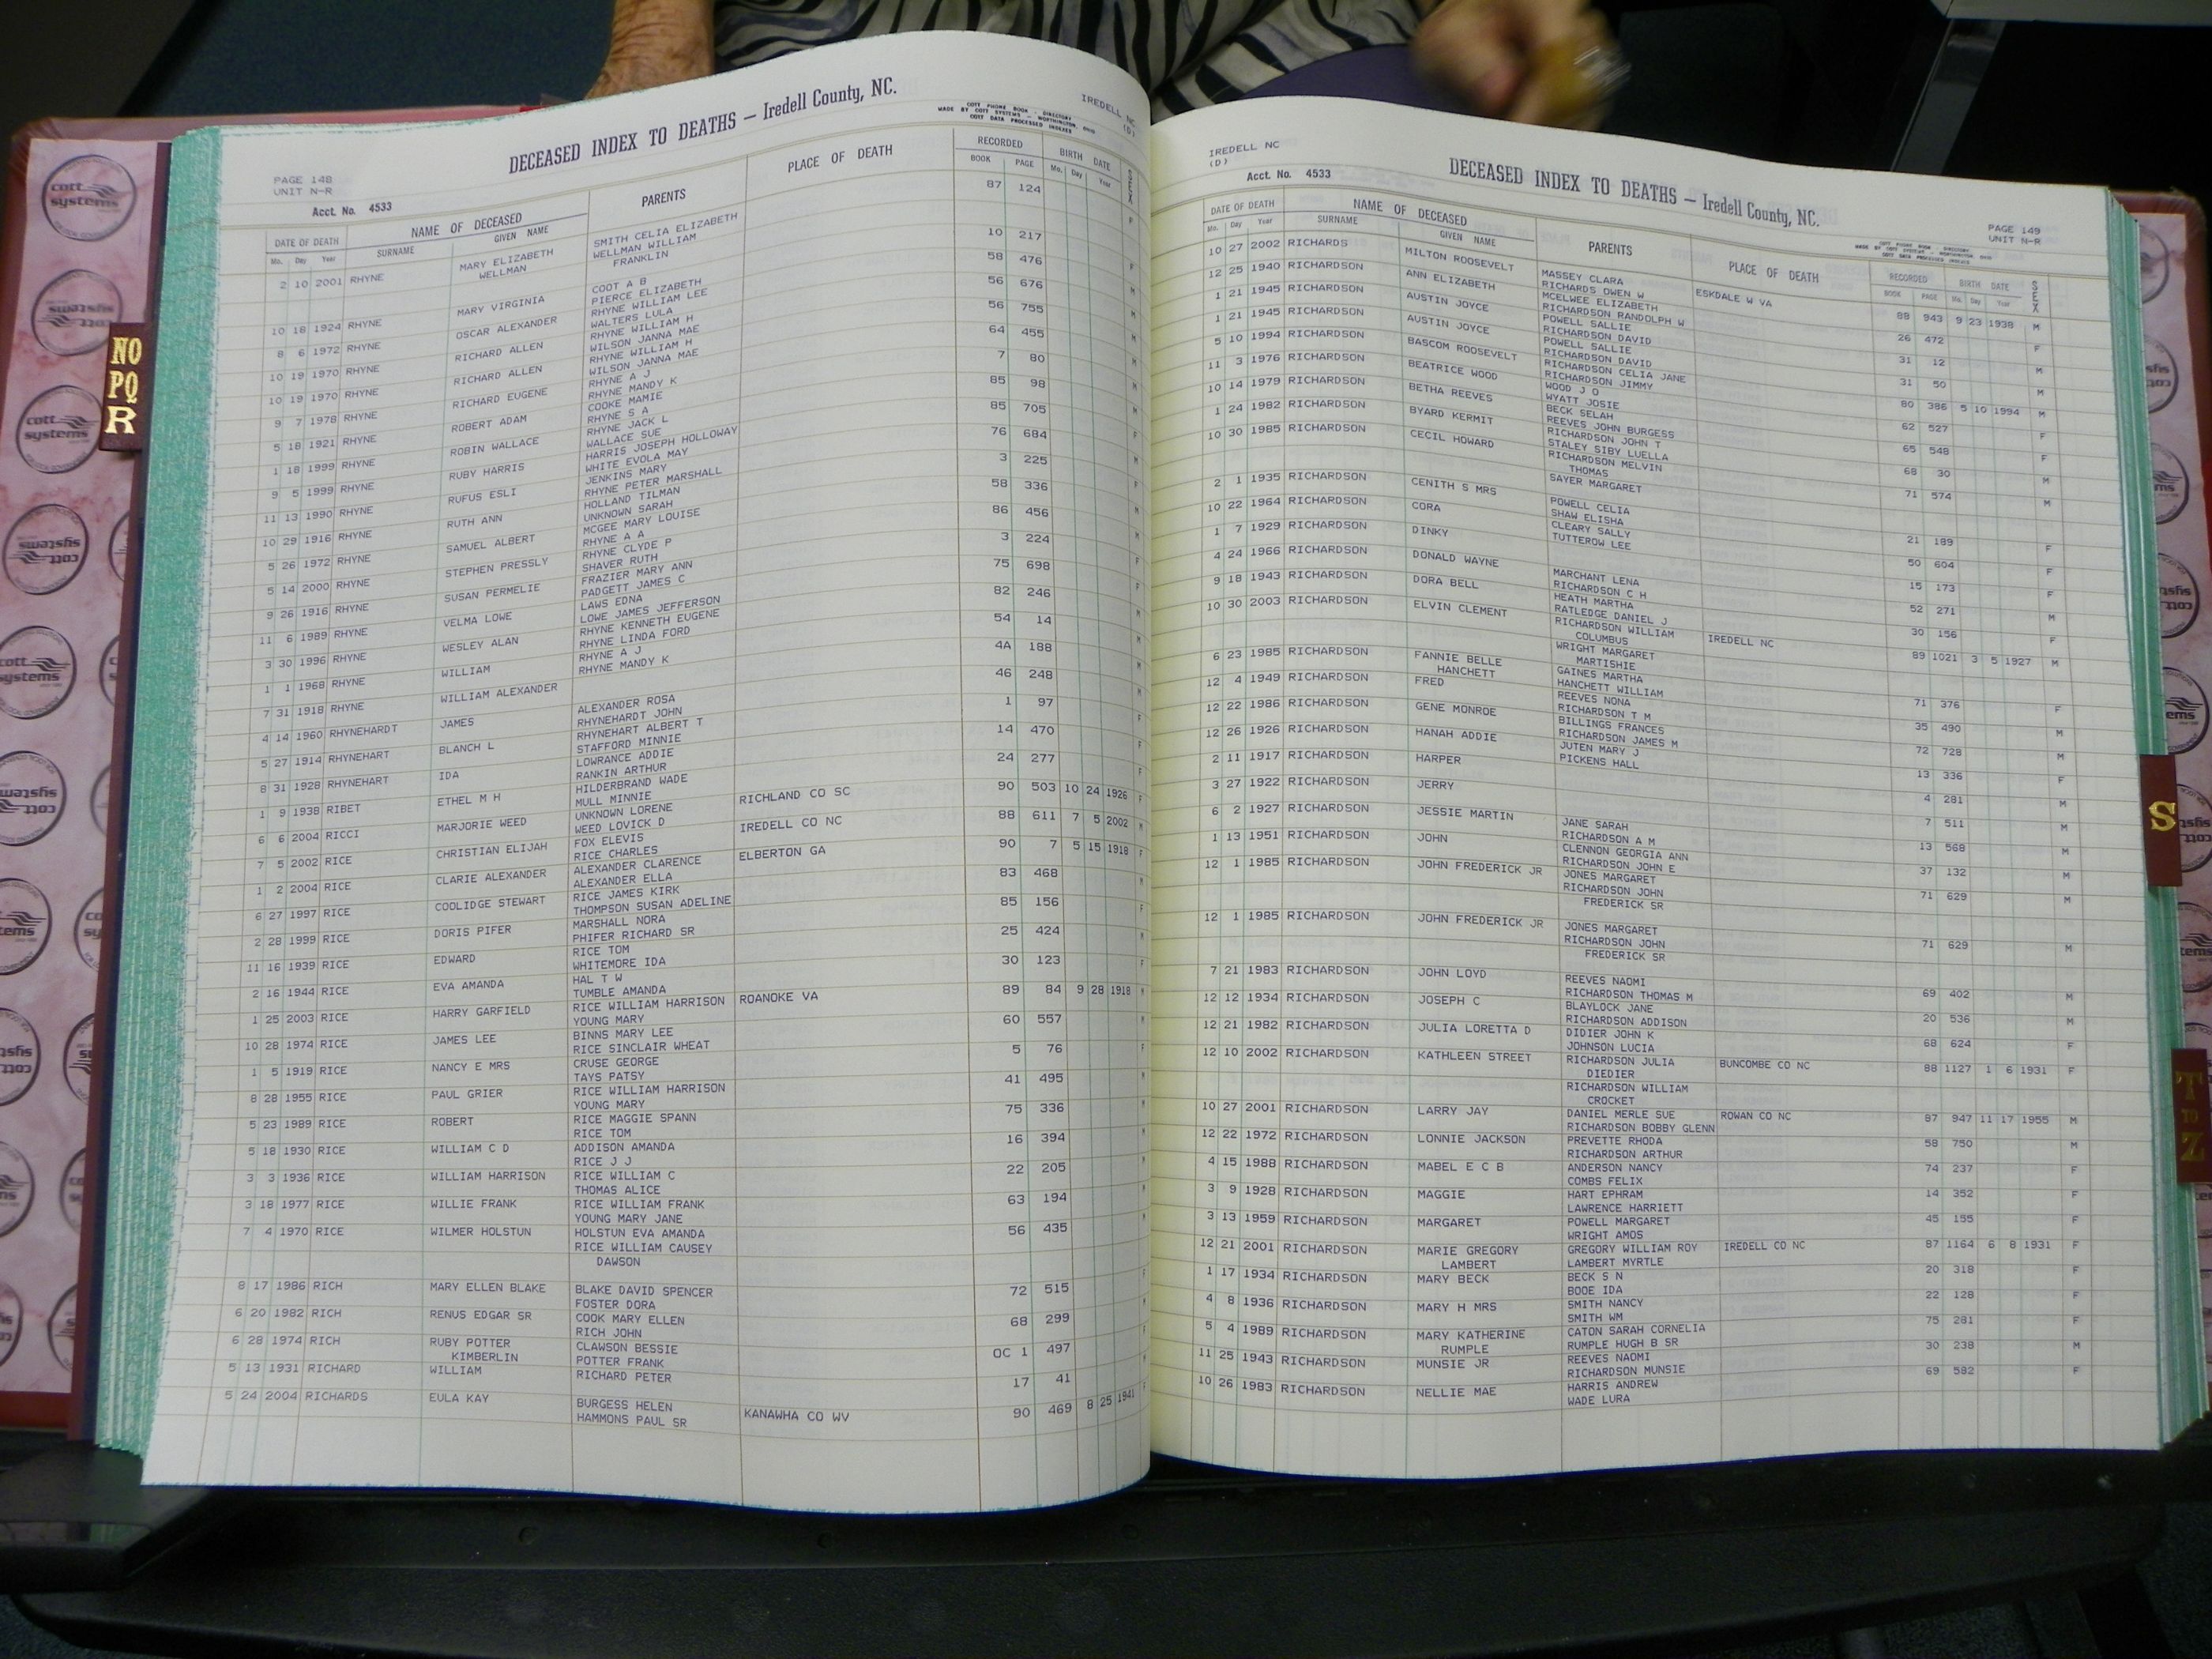 DECEASED INDEX TO DEATHS — Iredell County, NC.
MADE BY COTT PHONE BOOK - DIRECTORY
COTT SYSTEMS - WORTHINGTON, OHIO
COTT DATA PROCESSED INDEXES
IREDELL NC
(D)
PAGE 148
UNIT N-R
Acct. No. 4533
DATE OF DEATH NAME OF DECEASED PARENTS PLACE OF DEATH RECORDED BIRTH DATE SEX
Mo. Day Year SURNAME GIVEN NAME BOOK PAGE Mo. Day Year
2 10 2001 RHYNE MARY ELIZABETH SMITH CELIA ELIZABETH 87 124 F
WELLMAN WELLMAN WILLIAM
FRANKLIN
10 18 1924 RHYNE MARY VIRGINIA COOT A B 10 217 F
PIERCE ELIZABETH
8 6 1972 RHYNE OSCAR ALEXANDER RHYNE WILLIAM LEE 58 476 M
WALTERS LULA
10 19 1970 RHYNE RICHARD ALLEN RHYNE WILLIAM H 56 676 M
WILSON JANNA MAE
10 19 1970 RHYNE RICHARD ALLEN RHYNE WILLIAM H 56 755 M
WILSON JANNA MAE
9 7 1978 RHYNE RICHARD EUGENE RHYNE A J 64 455 M
RHYNE MANDY K
5 18 1921 RHYNE ROBERT ADAM COOKE MAMIE 7 80 M
RHYNE S A
1 18 1999 RHYNE ROBIN WALLACE RHYNE JACK L 85 98
WALLACE SUE
9 5 1999 RHYNE RUBY HARRIS HARRIS JOSEPH HOLLOWAY 85 705 F
WHITE EVOLA MAY
11 13 1990 RHYNE RUFUS ESLI JENKINS MARY 76 684 M
RHYNE PETER MARSHALL
10 29 1916 RHYNE RUTH ANN HOLLAND TILMAN 3 225 F
UNKNOWN SARAH
5 26 1972 RHYNE SAMUEL ALBERT MCGEE MARY LOUISE 58 336 M
RHYNE A A
5 14 2000 RHYNE STEPHEN PRESSLY RHYNE CLYDE P 86 456 M
SHAVER RUTH
9 26 1916 RHYNE SUSAN PERMELIE FRAZIER MARY ANN 3 224 F
PADGETT JAMES C
11 6 1989 RHYNE VELMA LOWE LAWS EDNA 75 698 F
LOWE JAMES JEFFERSON
3 30 1996 RHYNE WESLEY ALAN RHYNE KENNETH EUGENE 82 246 M
RHYNE LINDA FORD
1 1 1968 RHYNE WILLIAM RHYNE A J 54 14 M
RHYNE MANDY K
7 31 1918 RHYNE WILLIAM ALEXANDER 4A 188 M
4 14 1960 RHYNEHARDT JAMES ALEXANDER ROSA 46 248 M
RHYNEHARDT JOHN
5 27 1914 RHYNEHART BLANCH L RHYNEHART ALBERT T 1 97 F
STAFFORD MINNIE
8 31 1928 RHYNEHART IDA LOWRANCE ADDIE 14 470 F
RANKIN ARTHUR
1 9 1938 RIBET ETHEL M H HILDERBRAND WADE 24 277 F
MULL MINNIE
6 6 2004 RICCI MARJORIE WEED UNKNOWN LORENE RICHLAND CO SC 90 503 10 24 1926 F
WEED LOVICK D
7 5 2002 RICE CHRISTIAN ELIJAH FOX ELEVIS IREDELL CO NC 88 611 7 5 2002 M
RICE CHARLES
1 2 2004 RICE CLARIE ALEXANDER ALEXANDER CLARENCE ELBERTON GA 90 7 5 15 1918 F
ALEXANDER ELLA
6 27 1997 RICE COOLIDGE STEWART RICE JAMES KIRK 83 468 M
THOMPSON SUSAN ADELINE
2 28 1999 RICE DORIS PIFER MARSHALL NORA 85 156 F
PHIFER RICHARD SR
11 16 1939 RICE EDWARD RICE TOM 25 424 M
WHITEMORE IDA
2 16 1944 RICE EVA AMANDA HAL T W 30 123 F
TUMBLE AMANDA
1 25 2003 RICE HARRY GARFIELD RICE WILLIAM HARRISON ROANOKE VA 89 84 9 28 1918 M
YOUNG MARY
10 28 1974 RICE JAMES LEE BINNS MARY LEE 60 557 M
RICE SINCLAIR WHEAT
1 5 1919 RICE NANCY E MRS CRUSE GEORGE 5 76 F
TAYS PATSY
8 28 1955 RICE PAUL GRIER RICE WILLIAM HARRISON 41 495 M
YOUNG MARY
5 23 1989 RICE ROBERT RICE MAGGIE SPANN 75 336 M
RICE TOM
5 18 1930 RICE WILLIAM C D ADDISON AMANDA 16 394 M
RICE J J
3 3 1936 RICE WILLIAM HARRISON RICE WILLIAM C 22 205 M
THOMAS ALICE
3 18 1977 RICE WILLIE FRANK RICE WILLIAM FRANK 63 194 M
YOUNG MARY JANE
7 4 1970 RICE WILMER HOLSTUN HOLSTUN EVA AMANDA 56 435 M
RICE WILLIAM CAUSEY
DAWSON
8 17 1986 RICH MARY ELLEN BLAKE BLAKE DAVID SPENCER 72 515 F
FOSTER DORA
6 20 1982 RICH RENUS EDGAR SR COOK MARY ELLEN 68 299 M
RICH JOHN
6 28 1974 RICH RUBY POTTER CLAWSON BESSIE OC 1 497 F
KIMBERLIN POTTER FRANK
5 13 1931 RICHARD WILLIAM RICHARD PETER 17 41 M
5 24 2004 RICHARDS EULA KAY BURGESS HELEN KANAWHA CO WV 90 469 8 25 1941 F
HAMMONS PAUL SR
IREDELL NC
(D)
Acct. No. 4533
DECEASED INDEX TO DEATHS — Iredell County, NC.
PAGE 149
UNIT N-R
MADE BY COTT PHONE BOOK - DIRECTORY
COTT SYSTEMS - WORTHINGTON, OHIO
COTT DATA PROCESSED INDEXES
DATE OF DEATH NAME OF DECEASED PARENTS PLACE OF DEATH RECORDED BIRTH DATE SEX
Mo. Day Year SURNAME GIVEN NAME BOOK PAGE Mo. Day Year
10 27 2002 RICHARDS MILTON ROOSEVELT MASSEY CLARA ESKDALE W VA 88 943 9 23 1938 M
RICHARDS OWEN W
12 25 1940 RICHARDSON ANN ELIZABETH MCELWEE ELIZABETH 26 472 F
RICHARDSON RANDOLPH W
1 21 1945 RICHARDSON AUSTIN JOYCE POWELL SALLIE 31 12 M
RICHARDSON DAVID
1 21 1945 RICHARDSON AUSTIN JOYCE POWELL SALLIE 31 50 M
RICHARDSON DAVID
5 10 1994 RICHARDSON BASCOM ROOSEVELT RICHARDSON CELIA JANE 80 386 5 10 1994 M
RICHARDSON JIMMY
11 3 1976 RICHARDSON BEATRICE WOOD WOOD J O 62 527 F
WYATT JOSIE
10 14 1979 RICHARDSON BETHA REEVES BECK SELAH 65 548 F
REEVES JOHN BURGESS
1 24 1982 RICHARDSON BYARD KERMIT RICHARDSON JOHN T 68 30 M
STALEY SIBY LUELLA
10 30 1985 RICHARDSON CECIL HOWARD RICHARDSON MELVIN 71 574 M
THOMAS
SAYER MARGARET
2 1 1935 RICHARDSON CENITH S MRS POWELL CELIA 21 189 F
SHAW ELISHA
10 22 1964 RICHARDSON CORA CLEARY SALLY 50 604 F
TUTTEROW LEE
1 7 1929 RICHARDSON DINKY 15 173 F
4 24 1966 RICHARDSON DONALD WAYNE MARCHANT LENA 52 271 M
RICHARDSON C H
9 18 1943 RICHARDSON DORA BELL HEATH MARTHA 30 156 F
RATLEDGE DANIEL J
10 30 2003 RICHARDSON ELVIN CLEMENT RICHARDSON WILLIAM IREDELL NC 89 1021 3 5 1927 M
COLUMBUS
WRIGHT MARGARET
MARTISHIE
6 23 1985 RICHARDSON FANNIE BELLE GAINES MARTHA 71 376 F
HANCHETT HANCHETT WILLIAM
12 4 1949 RICHARDSON FRED REEVES NONA 35 490 M
RICHARDSON T M
12 22 1986 RICHARDSON GENE MONROE BILLINGS FRANCES 72 728 M
RICHARDSON JAMES M
12 26 1926 RICHARDSON HANAH ADDIE JUTEN MARY J 13 336 F
PICKENS HALL
2 11 1917 RICHARDSON HARPER 4 281 M
3 27 1922 RICHARDSON JERRY 7 511 M
6 2 1927 RICHARDSON JESSIE MARTIN JANE SARAH 13 568 M
RICHARDSON A M
1 13 1951 RICHARDSON JOHN CLENNON GEORGIA ANN 37 132 M
RICHARDSON JOHN E
12 1 1985 RICHARDSON JOHN FREDERICK JR JONES MARGARET 71 629 M
RICHARDSON JOHN
FREDERICK SR
12 1 1985 RICHARDSON JOHN FREDERICK JR JONES MARGARET 71 629 M
RICHARDSON JOHN
FREDERICK SR
7 21 1983 RICHARDSON JOHN LOYD REEVES NAOMI 69 402 M
RICHARDSON THOMAS M
12 12 1934 RICHARDSON JOSEPH C BLAYLOCK JANE 20 536 M
RICHARDSON ADDISON
12 21 1982 RICHARDSON JULIA LORETTA D DIDIER JOHN K 68 624 F
JOHNSON LUCIA
12 10 2002 RICHARDSON KATHLEEN STREET RICHARDSON JULIA BUNCOMBE CO NC 88 1127 1 6 1931 F
DIEDIER
RICHARDSON WILLIAM
CROCKET
10 27 2001 RICHARDSON LARRY JAY DANIEL MERLE SUE ROWAN CO NC 87 947 11 17 1955 M
RICHARDSON BOBBY GLENN
12 22 1972 RICHARDSON LONNIE JACKSON PREVETTE RHODA 58 750 M
RICHARDSON ARTHUR
4 15 1988 RICHARDSON MABEL E C B ANDERSON NANCY 74 237 F
COMBS FELIX
3 9 1928 RICHARDSON MAGGIE HART EPHRAM 14 352 F
LAWRENCE HARRIETT
3 13 1959 RICHARDSON MARGARET POWELL MARGARET 45 155 F
WRIGHT AMOS
12 21 2001 RICHARDSON MARIE GREGORY GREGORY WILLIAM ROY IREDELL CO NC 87 1164 6 8 1931 F
LAMBERT LAMBERT MYRTLE
1 17 1934 RICHARDSON MARY BECK BECK S N 20 318 F
BOOE IDA
4 8 1936 RICHARDSON MARY H MRS SMITH NANCY 22 128 F
SMITH WM
5 4 1989 RICHARDSON MARY KATHERINE CATON SARAH CORNELIA 75 281 F
RUMPLE RUMPLE HUGH B SR
11 25 1943 RICHARDSON MUNSIE JR REEVES NAOMI 30 238 M
RICHARDSON MUNSIE
10 26 1983 RICHARDSON NELLIE MAE HARRIS ANDREW 69 582 F
WADE LURA
NO
PQ
R
S
T
TO
Z
cott
systems